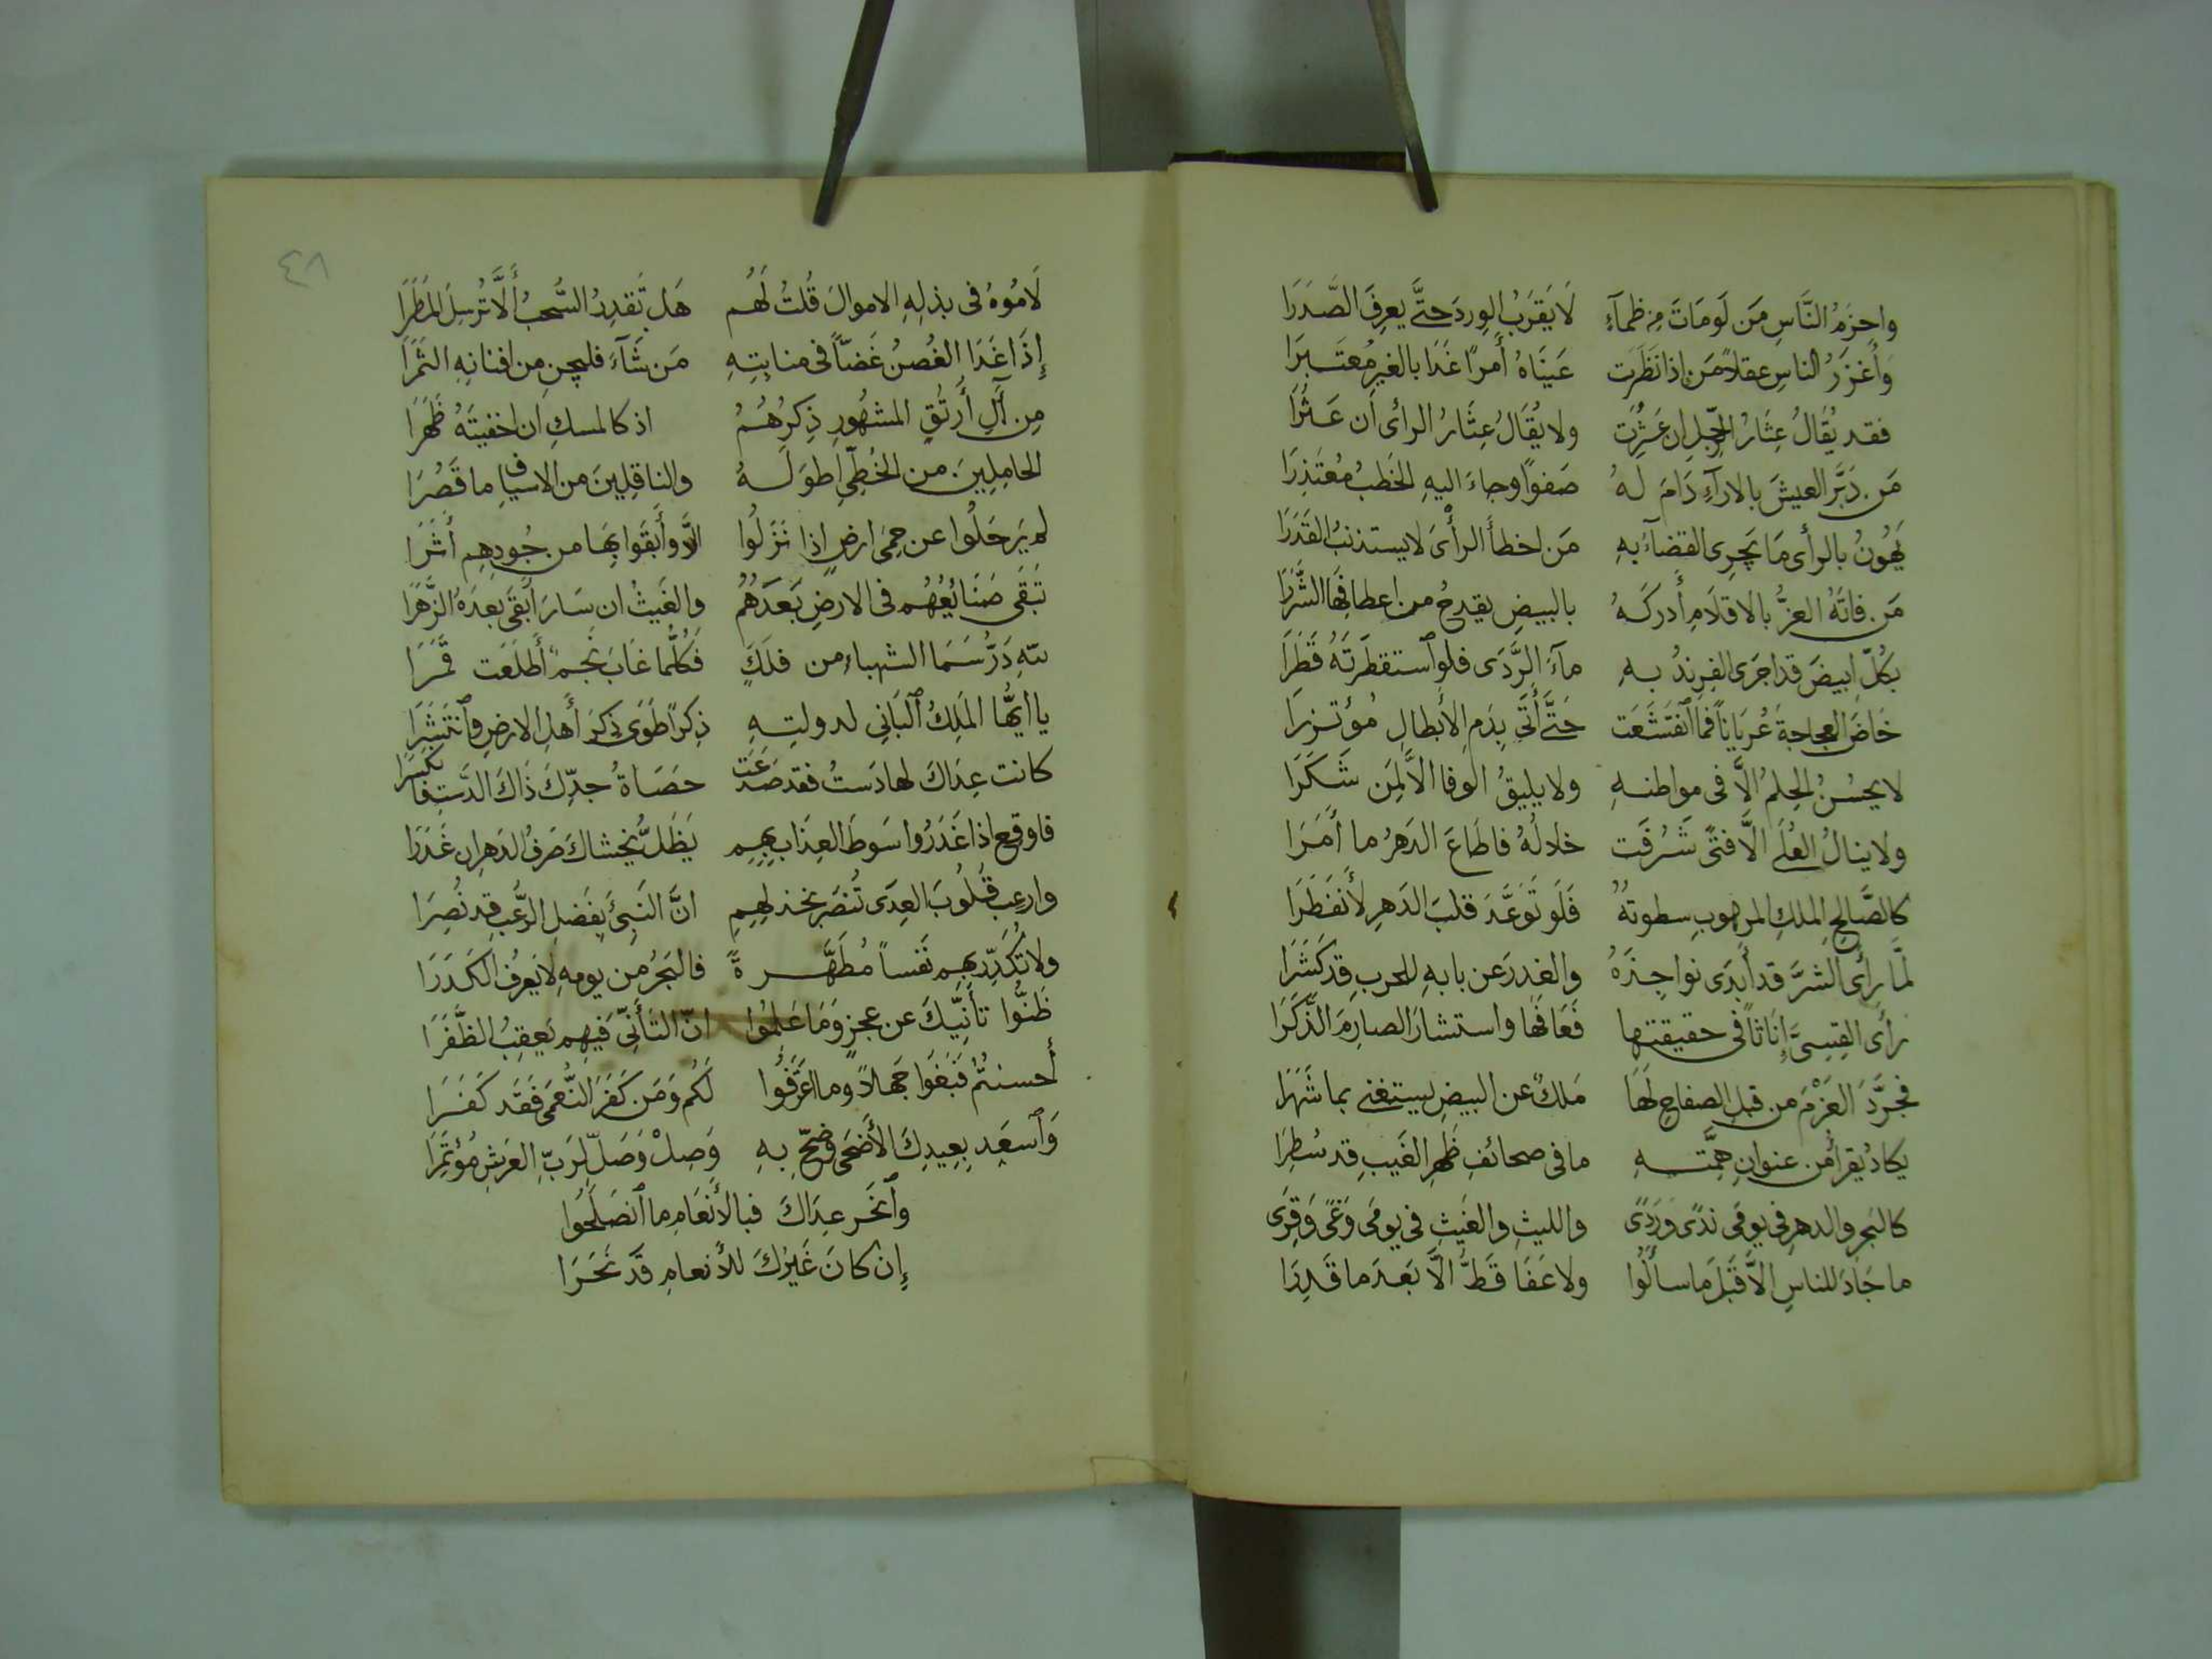 واحزَمُ النَّاسِ مَن لَومَاتَ مِن ظمآءٍ لَا يَقرَبُ الوِردَ حتَّى يعرِفَ الصَّدَرَا
وَأَغزَرُ الناسِ عقلاً مَن إذا نَظَرَت عَينَاهُ أَمراً غَدَا بالغيرِ مُعتَبِرَا
فقد يُقَالُ عِثَارُ الرِّجلِ ان عَثَرَت ولا يُقَالُ عِثَارُ الرائ ان عَثَرَا
مَن دَبَّرَ العيشَ بالارآءِ دَامَ لهُ صَفواً وجاءَ اليهِ الخَطبُ مُعتَذِرَا
يَهُونُ بالرأى مَا يَجرِى القضآءُ بهِ مَن اخطأَ الرأىَ لا يستذنبُ القَدَرَا
مَن فاتَهُ العزُّ بالاقلامِ أَدركَهُ بالبيضِ يقدحُ من اعطافِهَا الشَّرَرَا
بكُلِّ ابيضَ قد اجرَى الفِرِندُ بهِ مآءَ الرَّدَى فلوِ ٱستقطَرتَهُ قَطَرَا
خَاضَ العجاجةَ عُريَاناً فما ٱنقَشَعَت حَتَّى أَتَى بِدَمِ الأَبطالِ مُؤتزِرَا
لا يحسُنُ الحِلمُ الَّا فى مواطنهِ ولا يليقُ الوفا الَّا لِمَن شَكَرَا
ولا ينالُ العُلَى الَّا فتًى شَرُفَت خلالُهُ فاطَاعَ الدَهرُ ما أَمَرَا
كالصَّالحِ الملكِ المرهوبِ سطوتُهُ فَلَو تَوَعَّدَ قلبَ الدَهرِ لأَنفَطَرَا
لمَّا رأى الشرَّ قد أَبدَى نواجِذَهُ والغدرَ عن بابهِ للحربِ قد كَشَرَا
رأى القِسِىَّ إِنَاثاً فى حقيقتها فَعَافَهَا واستشارَ الصارِمَ الذَّكَرَا
فجرَّدَ العَزْمَ من قبلِ الصفاحِ لَهَا مَلكٌ عن البيضِ يستغنى بما شَهَرَا
يكادُ يُقرأُ من عنوانِ هِمَّتهِ ما فى صحائفِ ظَهرِ الغَيبِ قد سُطِرَا
كالبحرِ والدهرِ فى يومَى ندًى وَرَدًى والليثِ والغَيثِ فى يومَى وَغًى وَقِرَى
ما جَادَ للناسِ الَّا قَبلَ ما سأَلُوا ولا عَفَا قَطُّ الَّا بَعدَ ما قَدِرَا
٤٨
لَامُوهُ فى بذلِهِ الاموالَ قُلتُ لَهُم هَل تَقدِرُ السُّحبُ أَلَّا تُرسِلَ المَطَرَا
إِذَا غَدَا الغُصنُ غَضّاً فى منابِتِهِ مَن شَآءَ فليجنِ من افنانِهِ الثَمَرَا
مِن آلِ أَرتُقٍ المشهُورِ ذِكرُهُمُ اذ كالمسكِ ان اخفيتَهُ ظَهَرَا
الحامِلِينَ من الخُطِّىِ اطوَلَهُ والناقِلِينَ من الاسيافِ ما قَصُرَا
لم يَرحَلُوا عن حِمَى ارضٍ اذا نَزَلُوا الَّا وأَبقَوا بِهَا من جُودِهِم أَثَرَا
تَبقَى صَنَائِعُهُم فى الارضِ بَعدَهُمُ والغَيثُ ان سَارَ أَبقَى بعدَهُ الزَّهَرَا
للّهِ دَرُّ سَمَا الشهباءِ من فلَكٍ فَكُلَّما غَابَ نَجمٌ أَطلَعَت قَمَرَا
يا ايُّها المَلِكُ ٱلبَانِى لدولتِهِ ذِكراً طَوَى ذِكرَ أَهلِ الارضِ وٱنتَشَرَا
كانت عِدَاكَ لها دَستٌ فقد صَدَعَت حصَاةُ جدِّكَ ذَاكَ الدَّستِ فانكسرَا
فاوقِع اذا غَدَرُوا سَوطَ العِذَابِ بِهِم يَظَلُّ يخشاكَ صَرفُ الدَهرِ ان غَدَرَا
وارعِب قُلُوبَ العِدَى تُنصَر بخذلِهِمِ انَّ النَبِىَّ بِفَضلِ الرُّعبِ قد نُصِرَا
ولا تُكَدِّر بِهِم نَفساً مُطَهَّرةً فالبَحرُ من يومهِ لا يَعرِفُ الكَدَرَا
ظَنُّوا تأنِّيكَ عن عجزٍ وَمَا عَلِمُوا انّ التأَنِّىَ فيهِم يَعقِبُ الظَّفَرَا
أَحسنتُمُ فَبَغَوا جَهلاً وما ٱعترَفُوا لَكُم وَمَن كَفَرَ النُّعمَى فَقَد كَفَرَا
وَٱسعَد بِعِيدِكَ الأَضحَى وَضَحِّ بهِ وَصِلْ وَصَلِّ لِرَبِّ العَرشِ مُؤتَمِرَا
وٱنحَر عِدَاكَ فبالأَنعَامِ ما ٱنصَلَحُوا
إِن كانَ غَيرُكَ للأَنعامِ قَد نَحَرَا